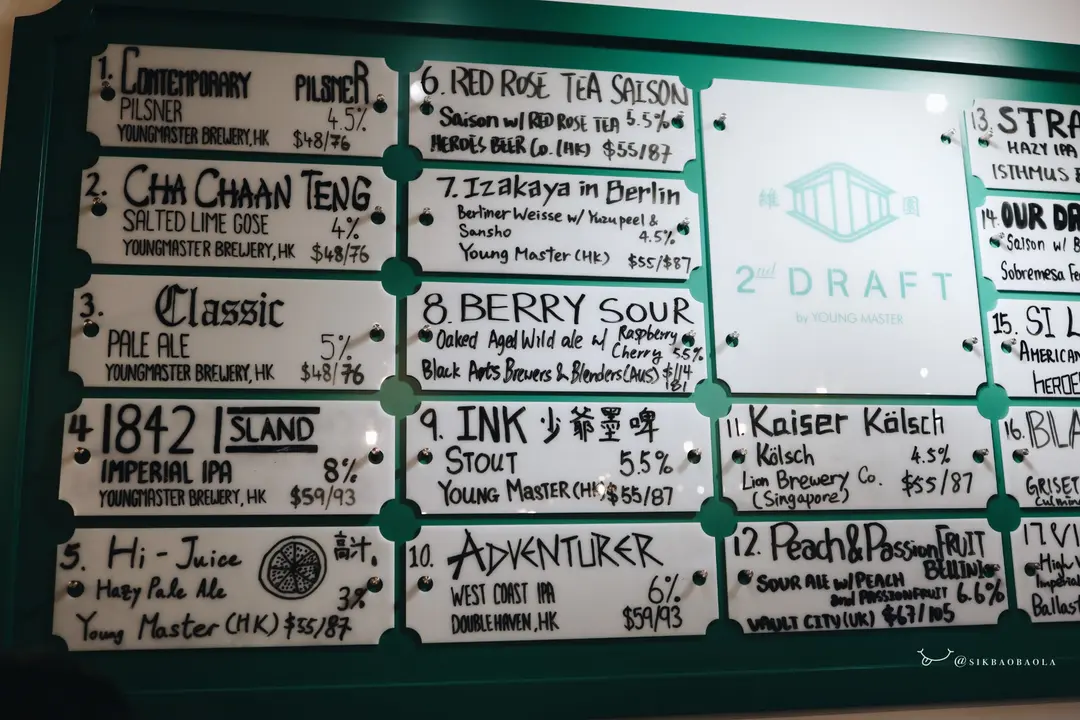 1. CONTEMPORARY PILSNER
PILSNER 4.5%
YOUNGMASTER BREWERY, HK $48/76
2. CHA CHAAN TENG
SALTED LIME GOSE 4%
YOUNGMASTER BREWERY, HK $48/76
3. Classic
PALE ALE 5%
YOUNGMASTER BREWERY, HK $48/76
4 1842 ISLAND
IMPERIAL IPA 8%
YOUNGMASTER BREWERY, HK $59/93
5. Hi-Juice 高汁.
Hazy Pale Ale 3%
Young Master (HK) $55/87
6. RED ROSE TEA SAISON
Saison w/ RED ROSE TEA 5.5%
HEROES BEER Co. (HK) $55/87
7. Izakaya in Berlin
Berliner Weisse w/ Yuzupeel &
Sansho 4.5%
Young Master (HK) $55/$87
8. BERRY SOUR
Oaked Aged Wild ale w/ Raspberry
Cherry 5.5%
Black Arts Brewers & Blenders (AUS) $114
181
9. INK 少爺墨啤
STOUT 5.5%
YOUNG MASTER (HK) $55/87
10. ADVENTURER
WEST COAST IPA 6%
DOUBLE HAVEN, HK $59/93
維 園
2nd DRAFT
by YOUNG MASTER
11. Kaiser Kölsch
Kölsch 4.5%
Lion Brewery Co. $55/87
(Singapore)
12. Peach & Passion FRUIT
BELLINI
SOUR ALE w/ PEACH
and PASSIONFRUIT 6.6%
VAULT CITY (UK) $67/105
13. STRA
HAZY IPA
ISTHMUS
14. OUR DR
Saison w/ B
Sobremesa Fe
15. SI L
AMERICAN
HEROE
16. BLA
GRISET
17. VI
High
Imperial
Ballast
@SIKBAOBAOLA